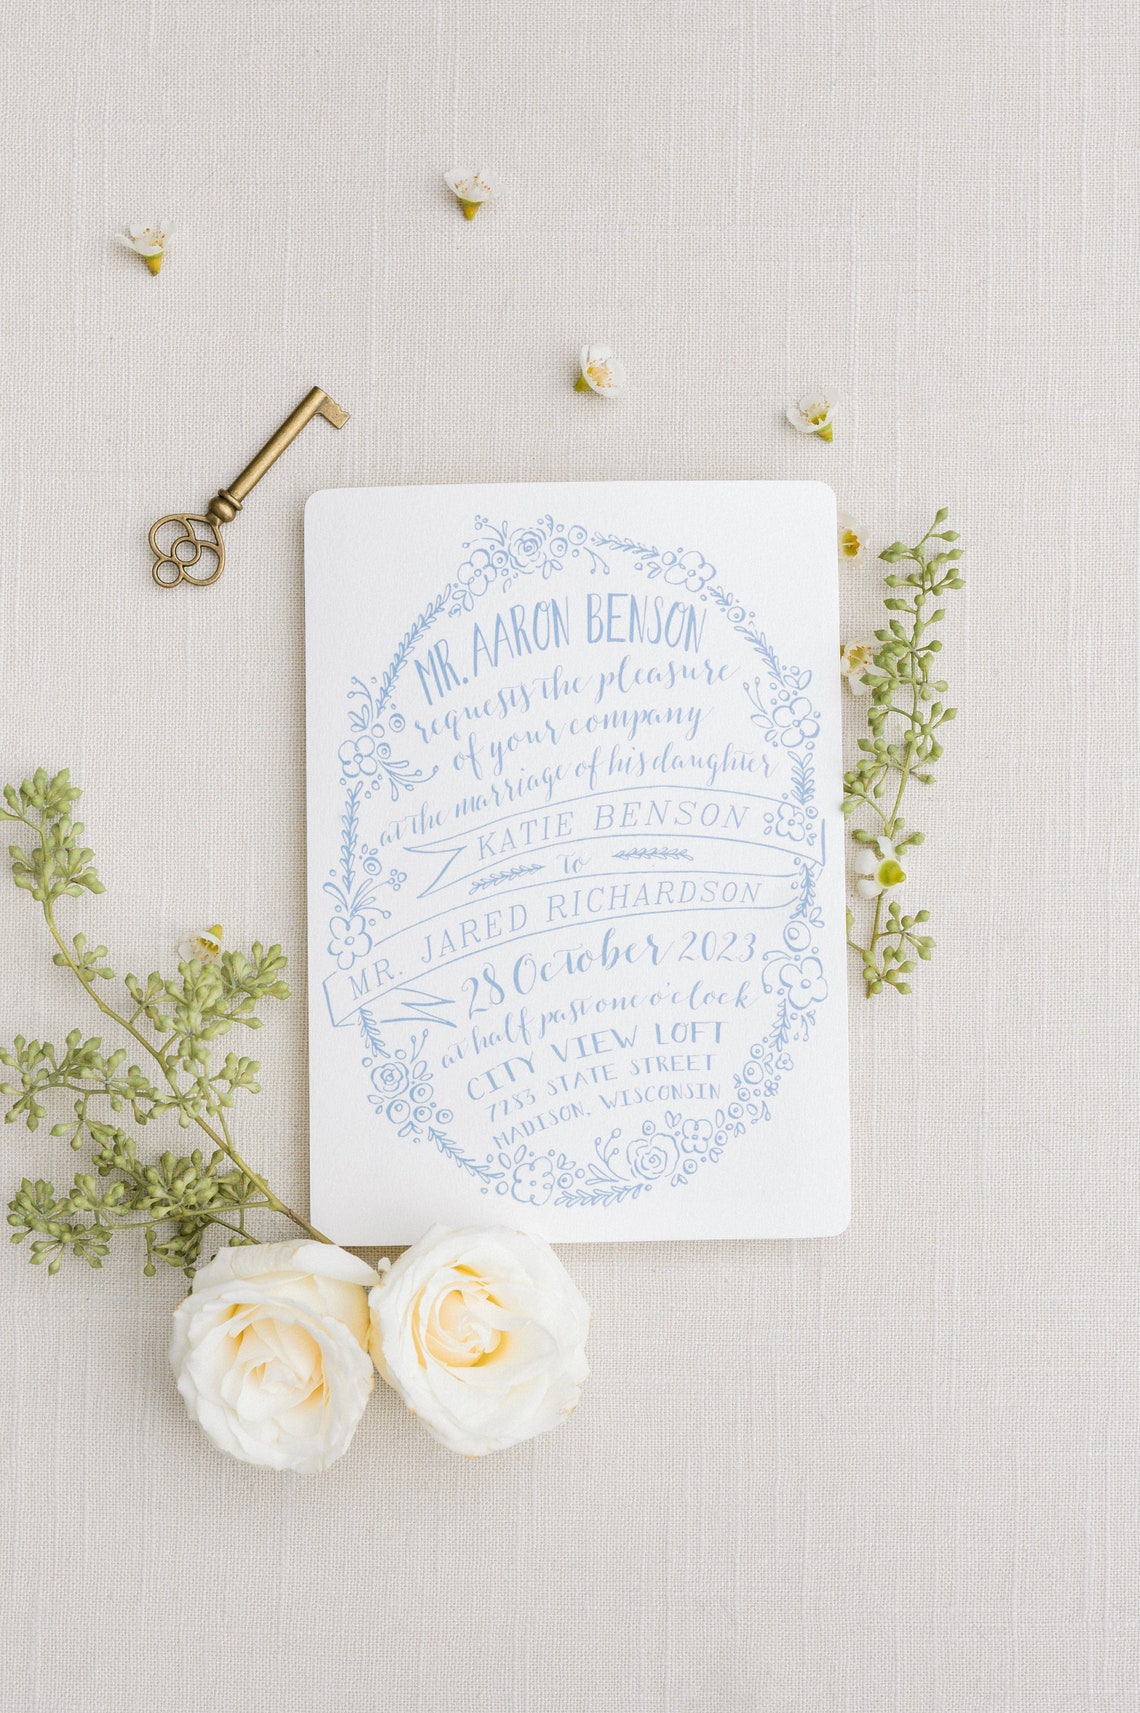 MR. AARON BENSON
requests the pleasure
of your company
at the marriage of his daughter
KATIE BENSON
to
MR. JARED RICHARDSON
28 October 2023
at half past one o'clock
CITY VIEW LOFT
7283 STATE STREET
MADISON, WISCONSIN